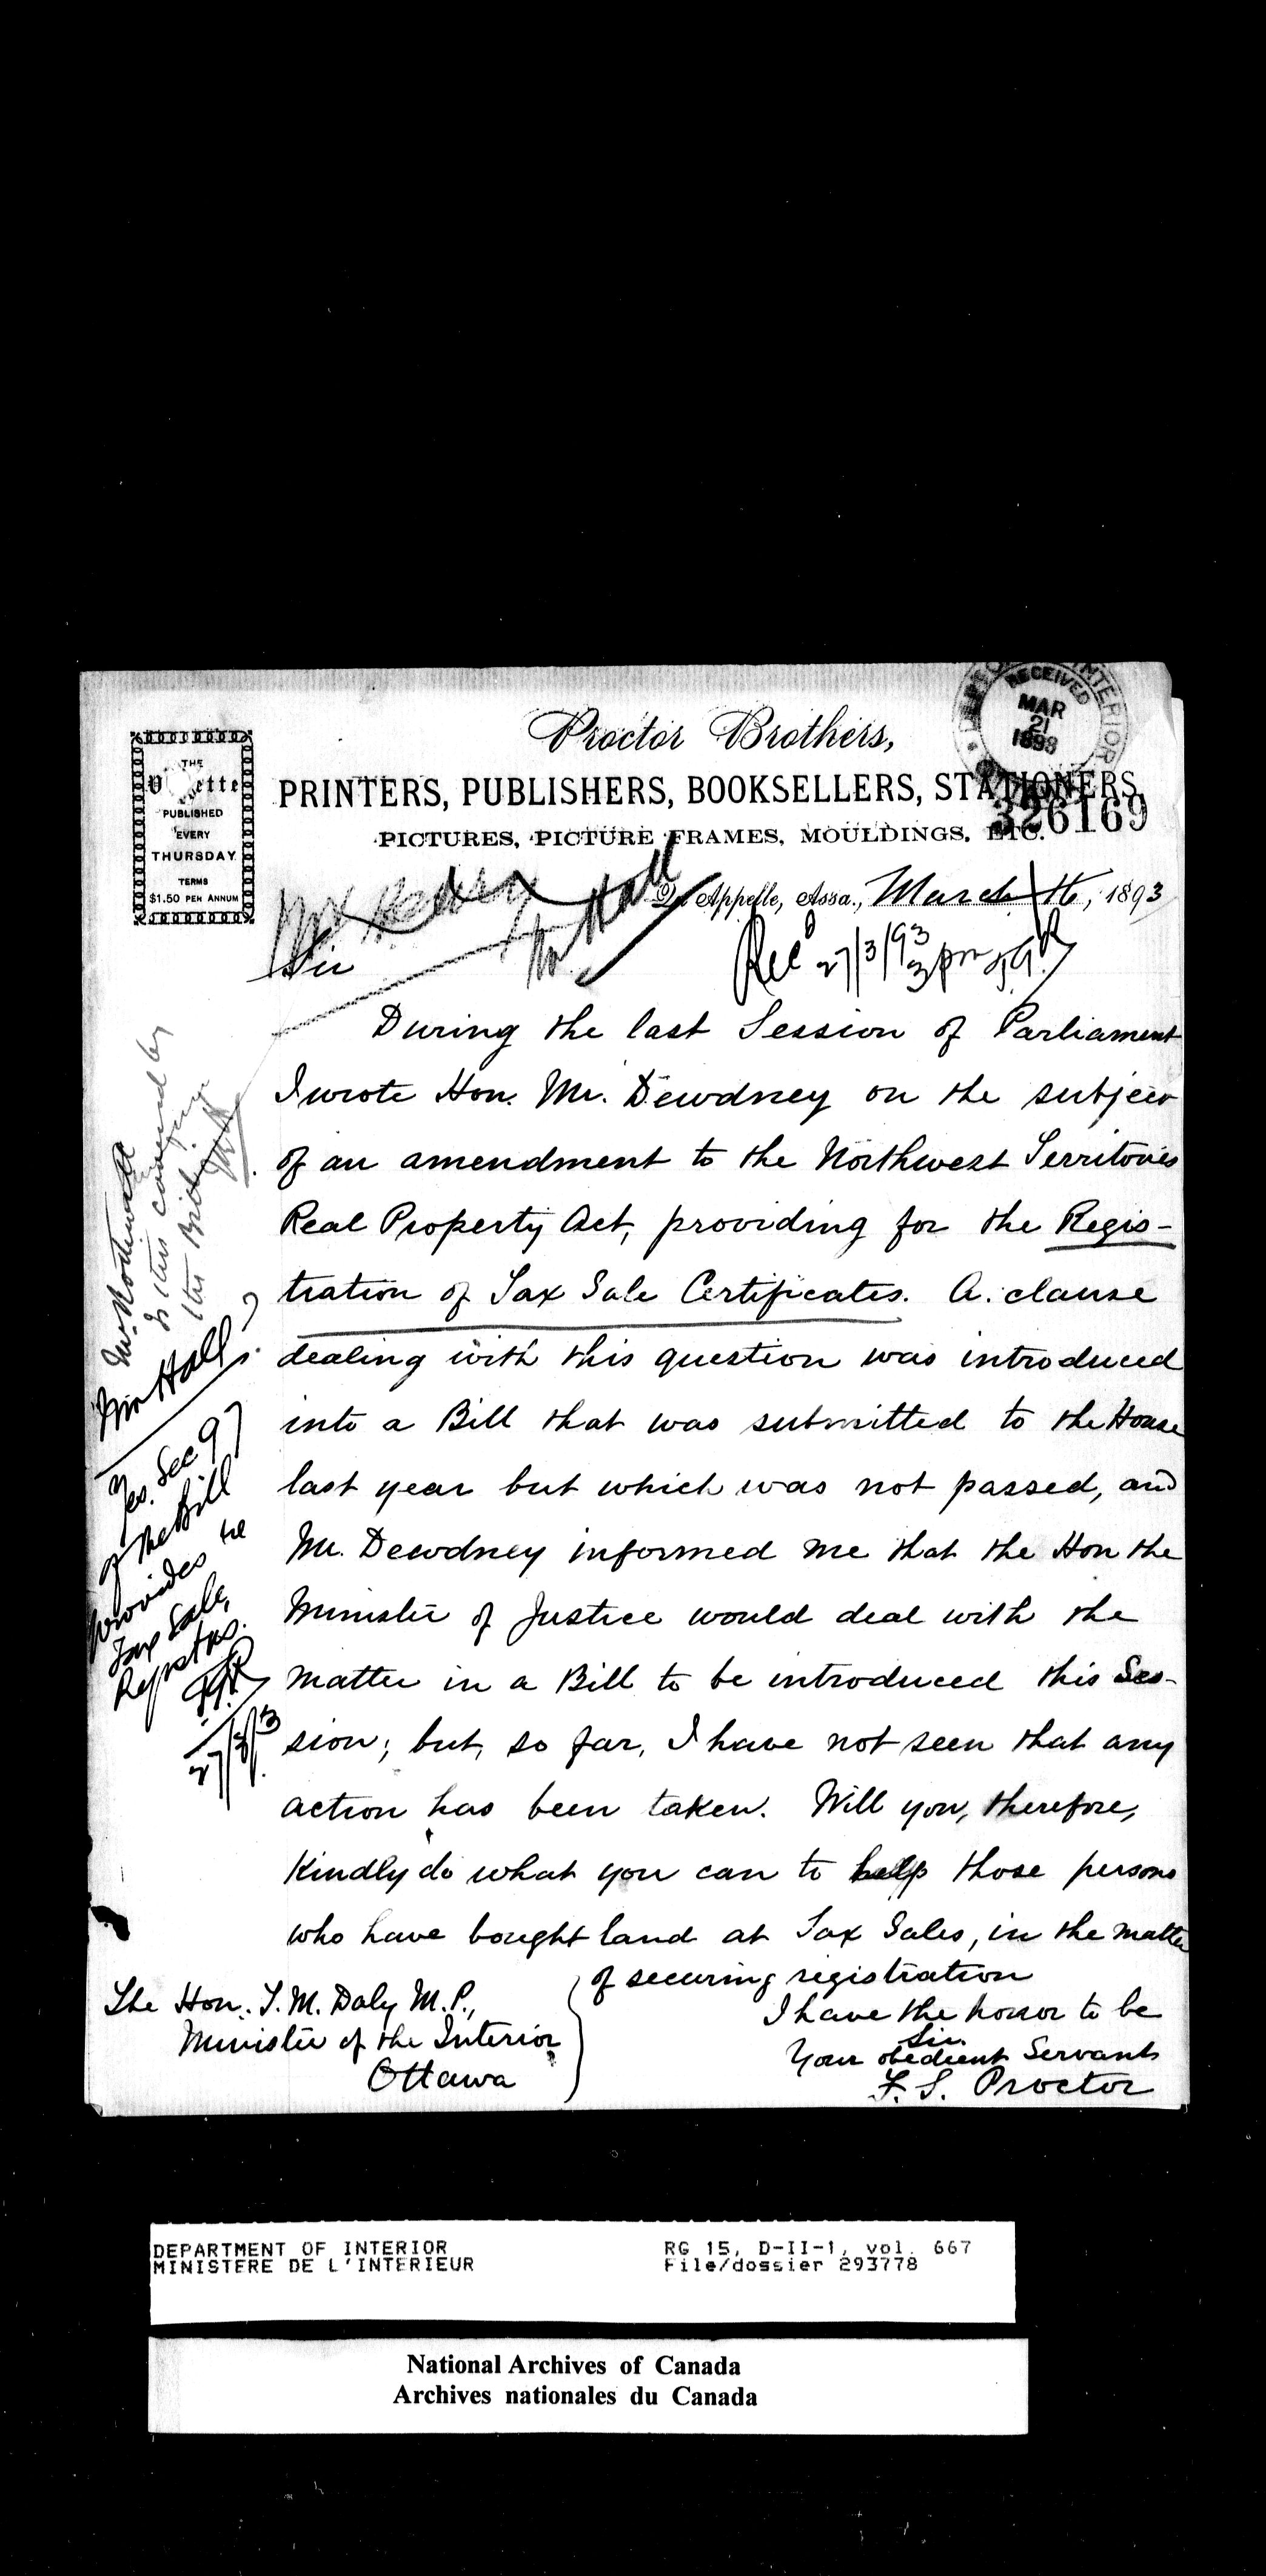 Proctor Brothers,
PRINTERS, PUBLISHERS, BOOKSELLERS, STATIONERS,
PICTURES, PICTURE FRAMES, MOULDINGS, ETC.
THE
PUBLISHED
EVERY
THURSDAY
TERMS
$1.50 PER ANNUM
INTERIOR
RECEIVED
MAR
21
1893
326169
Mr Hall
Qu'Appelle, Assa., March 16, 1893
Recd 27/3/93
3 pm
Sir
During the last Session of Parliament
I wrote Hon. Mr. Dewdney on the subject
of an amendment to the Northwest Territories
Real Property Act, providing for the Regis-
tration of Tax Sale Certificates. A. clause
dealing with this question was introduced
into a Bill that was submitted to the House
last year but which was not passed, and
Mr. Dewdney informed me that the Hon the
Minister of Justice would deal with the
matter in a Bill to be introduced this Ses-
sion; but, so far, I have not seen that any
action has been taken. Will you, therefore,
Kindly do what you can to help those persons
who have bought land at Tax Sales, in the matter
of securing registration
I have the honor to be
Sir
Your obedient Servant
F. S. Proctor
The Hon. T. M. Daly M. P.,
Minister of the Interior
Ottawa
Is this covered by
the Bill
Mr Hall
Yes. Sec 97
of the Bill
provides re
Tax Sale
27/3/93
DEPARTMENT OF INTERIOR
MINISTERE DE L'INTERIEUR
RG 15, D-II-1, vol. 667
File/dossier 293778
National Archives of Canada
Archives nationales du Canada